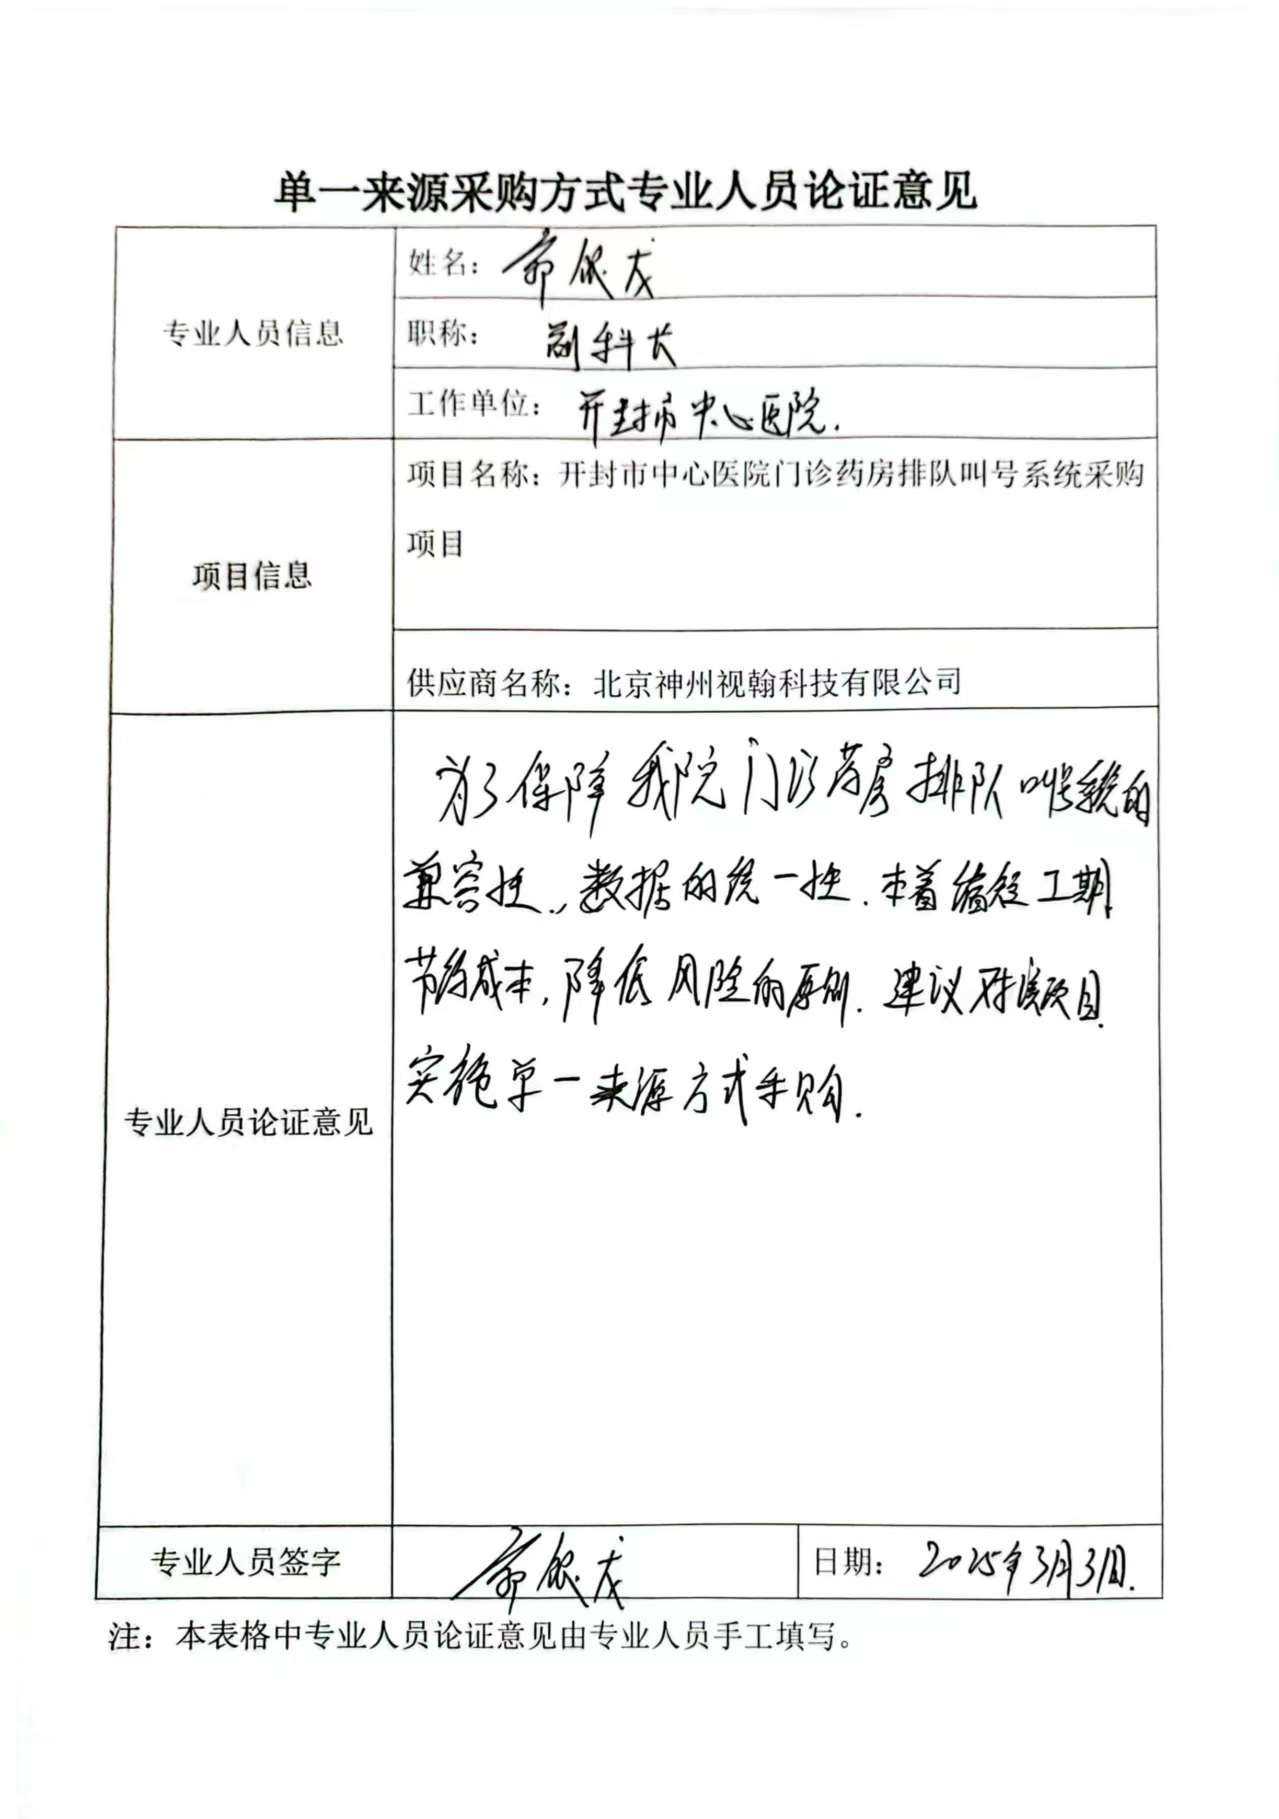 单一来源采购方式专业人员论证意见
专业人员信息
姓名：
职称： 副科长
工作单位： 开封市中心医院.
项目信息
项目名称：开封市中心医院门诊药房排队叫号系统采购
项目
供应商名称：北京神州视翰科技有限公司
专业人员论证意见
为了保障我院门诊药房排队叫号系统的
兼容性、数据的统一性.本着缩短工期
节约成本,降低风险的原则.建议对该项目
实施单一来源方式采购.
专业人员签字
日期： 2025年3月31日.
注：本表格中专业人员论证意见由专业人员手工填写。